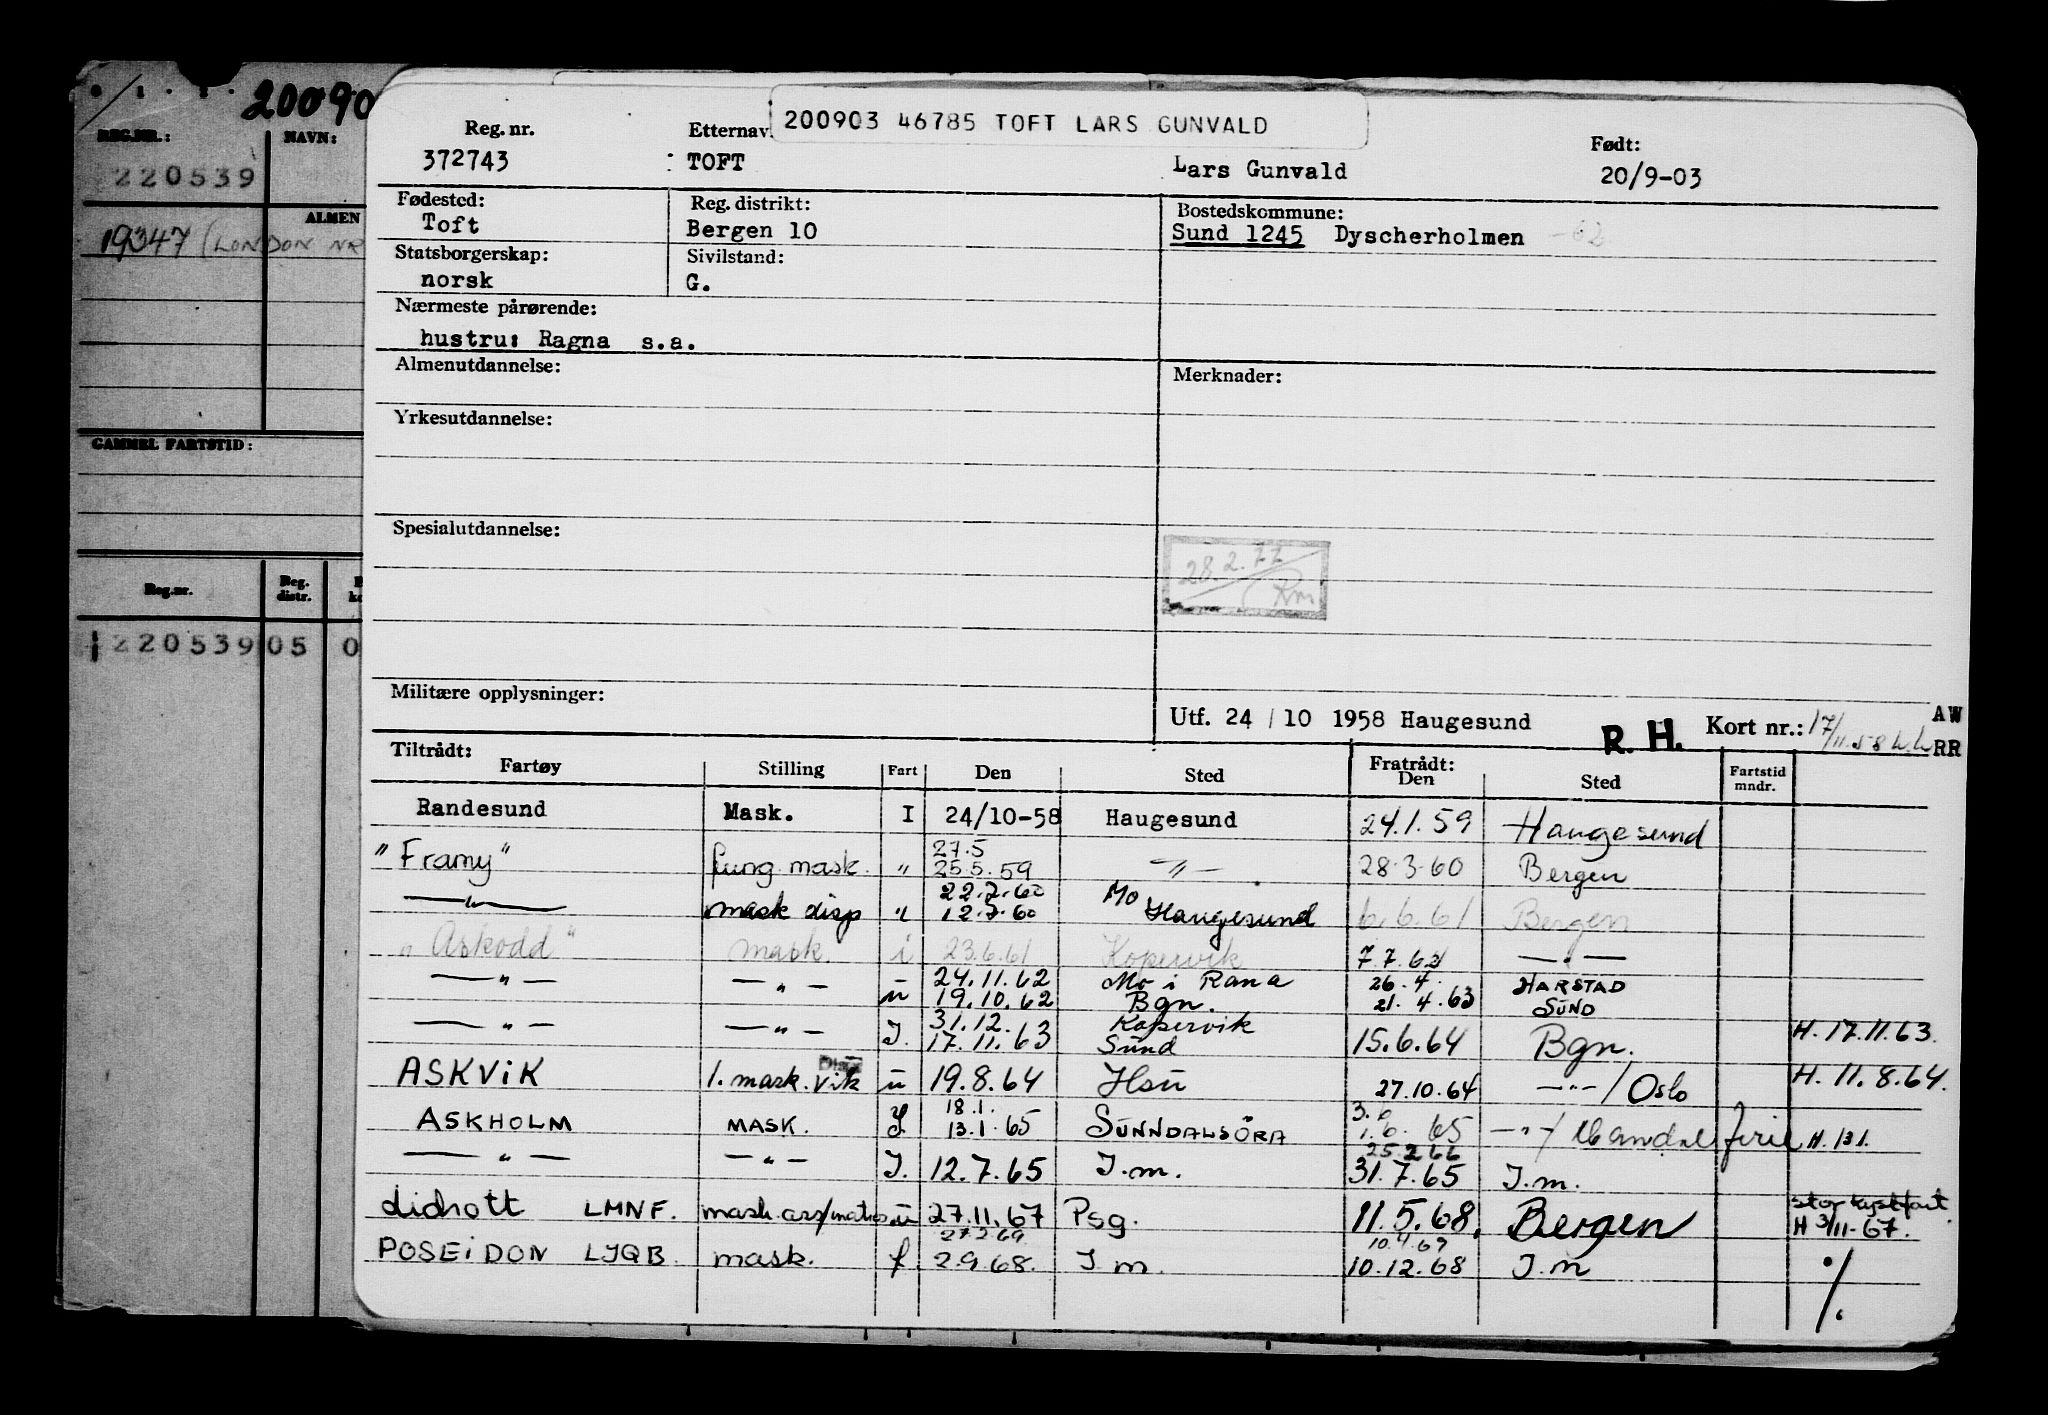 20090
REG.NR.:
NAVN:
220539
ALMEN
19347 (LONDON NR
GAMMEL FARTSTID:
Reg.nr.
Reg. distr.
220539 05 0
200903 46785 TOFT LARS GUNVALD
Reg. nr. Etternav Født:
372743 : TOFT Lars Gunvald 20/9-03
Fødested: Reg. distrikt: Bostedskommune:
Toft Bergen 10 Sund 1245 Dyscherholmen -62
Statsborgerskap: Sivilstand:
norsk G.
Nærmeste pårørende:
hustru: Ragna s.a.
Almenutdannelse: Merknader:
Yrkesutdannelse:
Spesialutdannelse:
28.2.77
Rm
Militære opplysninger:
Utf. 24 / 10 1958 Haugesund R. H. Kort nr.: 17/11.58 AW
RR
Tiltrådt: Fratrådt:
Fartøy Stilling Fart Den Sted Den Sted Fartstid mndr.
Randesund Mask. I 24/10-58 Haugesund 24.1.59 Haugesund
27.5
"Framy" fung. mask. " 25.5.59 —"— 28.3.60 Bergen
22.7.60 Mo
—"— mask disp " 12.7.60 Haugesund 6.6.61 Bergen
"Askodd" mask. i 23.6.61 Kopervik 7.7.62 —"—
24.11.62 Mo i Rana 26.4. HARSTAD
—"— —"— u 19.10.62 Bgn. 21.4.63 SUND
31.12. Kopervik
—"— —"— I. 17.11.63 Sund 15.6.64 Bgn. H. 17.11.63.
ASKVIK 1. mask. vik u 19.8.64 Hsu 27.10.64 —"—/Oslo H. 11.8.64.
18.1. 3.6
ASKHOLM MASK. I 13.1.65 SUNNDALSÖRA 1.6.65 —"—/ Mandal ferie H. 13.1.
25.2.66
—"— —"— I. 12.7.65 I.m. 31.7.65 I.m.
Lidrott LMNF. mask.ass/matros u 27.11.67 Psg. 11.5.68. Bergen stor kystfart
H 3/11-67.
27.2.69 10.4.69
POSEIDON LJQB. mask. f 2.9.68. I m. 10.12.68 I.m %